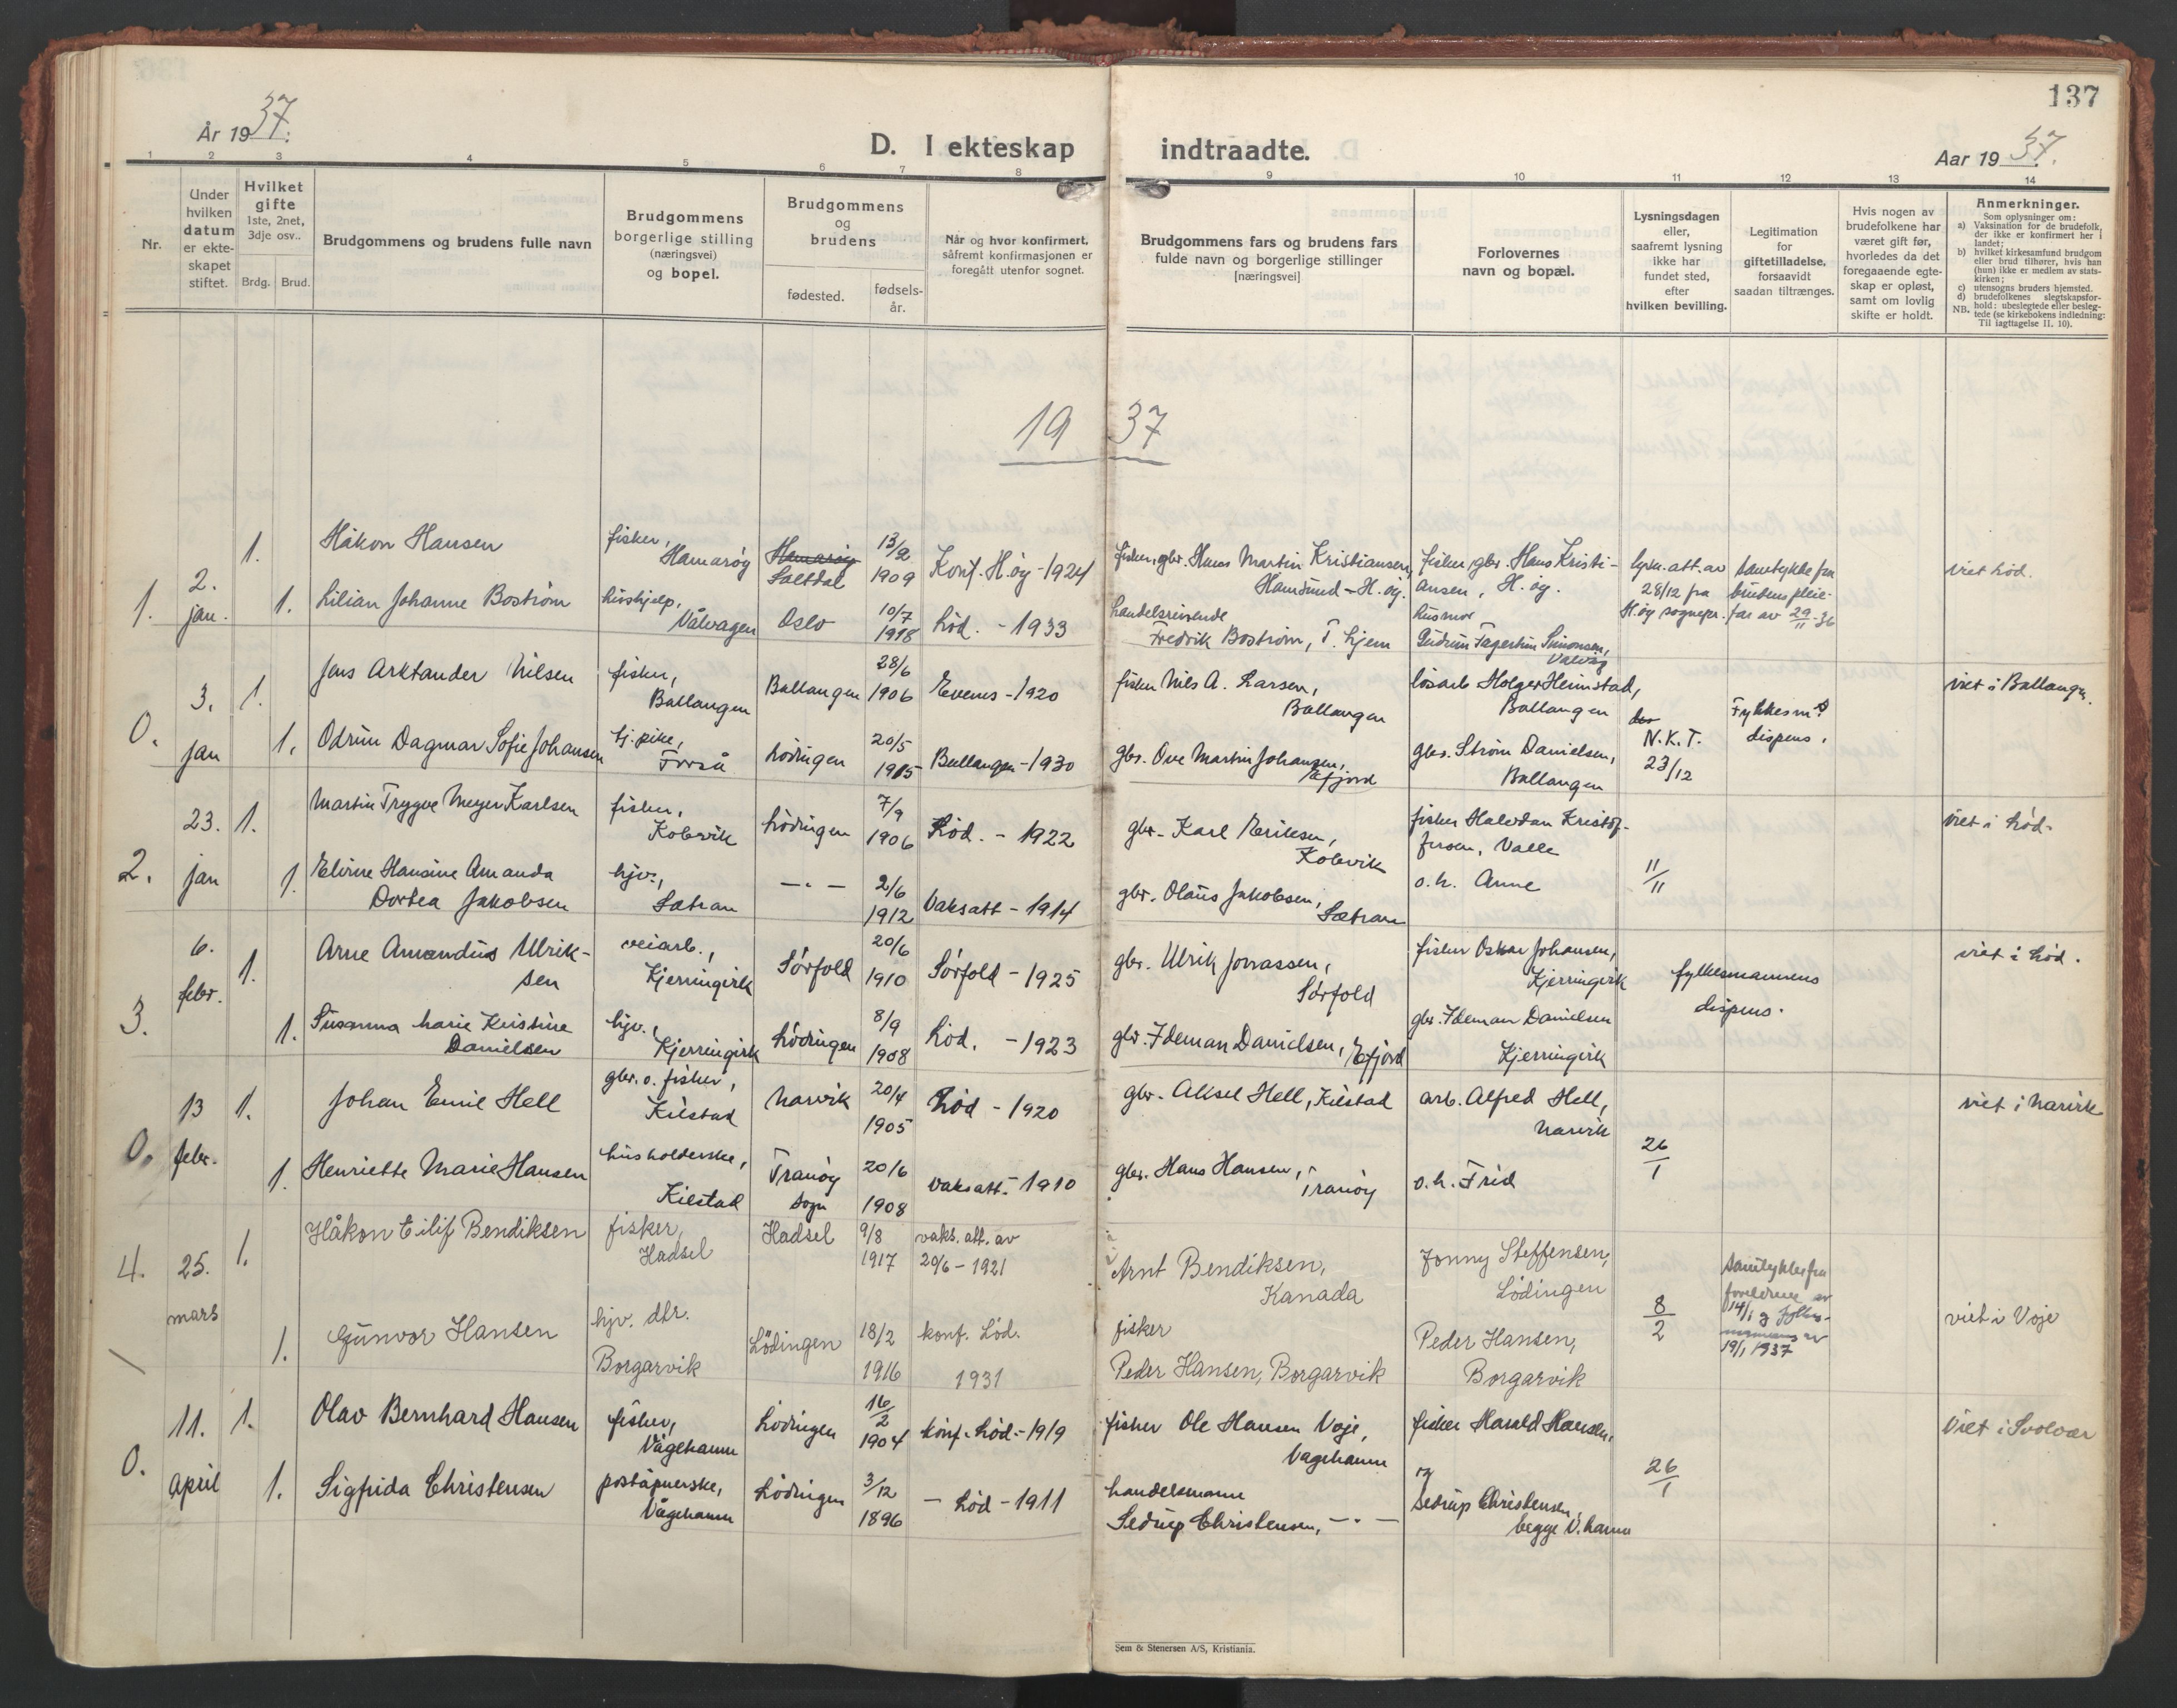 137
År 1937.
D. I ekteskap indtraadte.
Aar 1937.
1 2 3 4 5 6 7 8 9 10 11 12 13 14
Nr.
Under hvilken datum er ekte-skapet stiftet.
Hvilket gifte 1ste, 2net, 3dje osv..
Brdg. Brud.
Brudgommens og brudens fulle navn
Brudgommens borgerlige stilling (næringsvei) og bopel.
Brudgommens og brudens
fødested.
fødsels-år.
Når og hvor konfirmert, såfremt konfirmasjonen er foregått utenfor sognet.
Brudgommens fars og brudens fars fulde navn og borgerlige stillinger [næringsvei]
Forlovernes navn og bopæl.
Lysningsdagen eller, saafremt lysning ikke har fundet sted, efter hvilken bevilling.
Legitimation for giftetilladelse, forsaavidt saadan tiltrænges.
Hvis nogen av brudefolkene har været gift før, hvorledes da det foregaaende egte-skap er opløst, samt om lovlig skifte er holdt.
Anmerkninger.
Som oplysninger om:
a) Vaksination for de brudefolk, der ikke er konfirmert her i landet;
b) hvilket kirkesamfund brudgom eller brud tilhører, hvis han (hun) ikke er medlem av stats-kirken;
c) utensogns bruders hjemsted.
d) brudefolkenes slegtskapsfor-hold: ubeslegtede eller besleg-tede (se kirkebokens indledning: Til iagttagelse II. 10).
NB.
1937
1. 2. jan.
1. Håkon Hansen
fisker, Hamarøy
Hamarøy Saltdal
13/2 1909
Konf. H.øy - 1924
fisker, gbr. Hans Martin Kristiansen, Hamsund - H.øy.
fisker, gbr. Hans Kristi-ansen, H.øy.
lysn.att.av 28/12 fra H.øy sognepr.
samtykke fra brudens pleie-far av 29/11-36
viet Lød.
1. Lilian Johanne Bostrøm
hushjelp, Vålvagen
Oslo
10/7 1918
Lød. - 1933
handelsreisende Fredrik Bostrøm, T. hjem
husmor Gudrun Fagertun Simonsen, Valvåg
0. 3. jan
1. Jens Arktander Nilsen
fisker, Ballangen
Ballangen
28/6 1906
Evenes - 1920
fisker Nils A. Larsen, Ballangen
løsarb Holger Heimstad, Ballangen
N.K.T. 23/12
Fylkesm.s dispens.
viet i Ballangen.
1. Odrun Dagmar Sofie Johansen
tj.pike, Forså
Lödingen
20/5 1915
Ballangen - 1930
gbr. Ove Martin Johansen, Efjord
gbr. Strøm Danielsen, Ballangen
2. 23. jan
1. Martin Trygve Meyer Karlsen
fisker, Kobvik
Lödingen
7/9 1906
Lød. - 1922
gbr. Karl Eriksen, Kobvik
fisker Halvdan Kristof-fersen, Valle
11/11
viet i Lød.
1. Elvine Hansine Amanda Dortea Jakobsen
hjv., Sætran
- " -
2/6 1912
Vaksatt - 1914
gbr. Olaus Jakobsen, Sætran
o.h. Arne
3. 6. febr.
1. Arne Amandus Ulrik-sen
veiarb., Kjerringvik
Sørfold
20/6 1910
Sørfold - 1925
gbr. Ulrik Jonassen, Sørfold
fisker Oskar Johansen, Kjerringvik
fylkesmannens dispens.
viet i Lød.
1. Susanna Marie Kristine Danielsen
hjv., Kjerringvik
Lödingen
8/9 1908
Lød. - 1923
gbr. Ideman Danielsen, Efjord
gbr. Ideman Danielsen Kjerringvik
0. 13 febr.
1. Johan Emil Hell
gbr. o. fisker, Kilstad
Narvik
20/4 1905
Lød - 1920
gbr. Aksel Hell, Kilstad
arb. Alfred Hell, Narvik
26/1
viet i Narvik
1. Henriette Marie Hansen
husholderske, Kilstad
Tranøy sogn
20/6 1908
vaksatt. - 1910
gbr. Hans Hansen, Tranøy
o.h. Frid
4. 25. mars
1. Håkon Eilif Bendiksen
fisker, Hadsel
Hadsel
9/8 1917
vaks. att. av 20/6 - 1921
Arnt Bendiksen, Kanada
Jonny Steffensen, Lödingen
8/2
Samtykke fra foreldrene av 14/1 og fylkes-mannens av 19/1 1937
viet i Voje
1. Gunvor Hansen
hjv. dtr. Borgarvik
Lödingen
18/2 1916
konf. Lød. 1931
fisker Peder Hansen, Borgarvik
Peder Hansen, Borgarvik
0. 11. april
1. Olav Bernhard Hansen
fisker, Vågehamn
Lödingen
16/2 1904
konf. Lød. - 1919
fisker Ole Hansen Voje, Vagehamn
fisker Harald Hansen,
26/1
Viet i Svolvær
1. Sigfrida Christensen
poståpnerske, Vågehamn
Lödingen
3/12 1896
- Lød - 1911
handelsmann Sedrup Christensen, - " -
og Sedrup Christensen, begge V.hamn
Sem & Stenersen A/S, Kristiania.